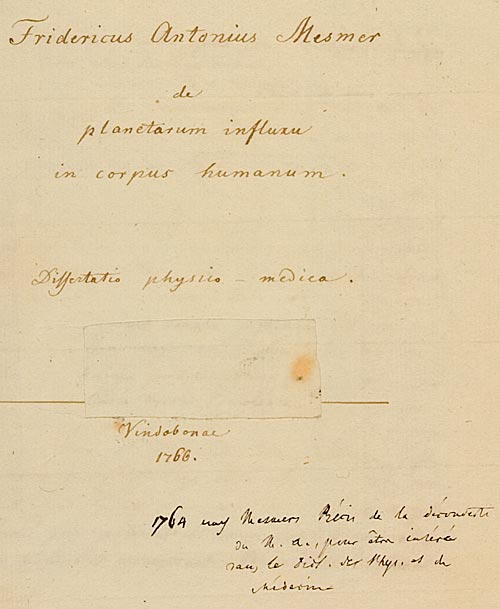 Fridericus Antonius Mesmer
de
planetarum influxu
in corpus humanum.
Dissertatio physico - medica.
Vindobonae
1766.
1764 Mesmers Précis de la découverte
du M. a., pour être inséré
dans le dict. des Phys. et de
Médecine